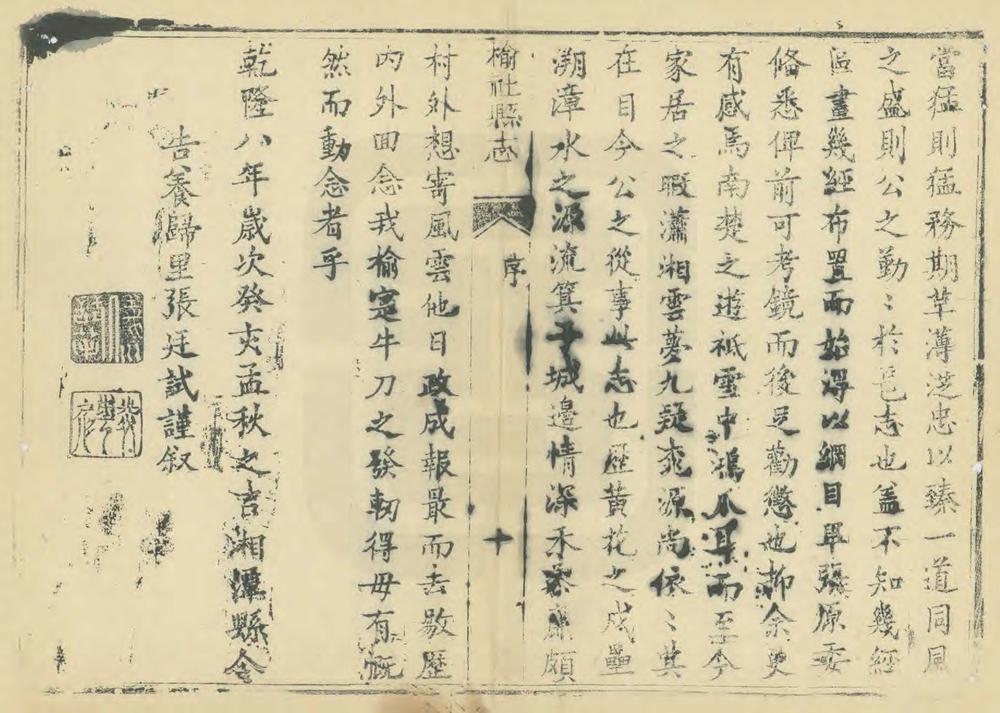 當猛則猛務期革薄從忠以臻一道同風
之盛則公之勤〻於邑志也盖不知幾經
區畫幾經布置而始得以綱目畢張原委
俻悉俾前可考鏡而後足勸懲也抑余更
有感焉南楚之遊祇雪中鴻爪耳而至今
家居之暇瀟湘雲夢九疑乘源尚依〻其
在目今公之從事此志也歷黃花之戍壘
溯漳水之源流箕子城邊情深禾黍廉頗
榆社縣志
序
十
村外想寄風雲他日政成報最而去敭歷
内外回念我榆寔牛刀之發軔得毋有慨
然而動念者乎
乾隆八年歲次癸亥孟秋之吉湘潭縣令
告養歸里張廷試謹叙